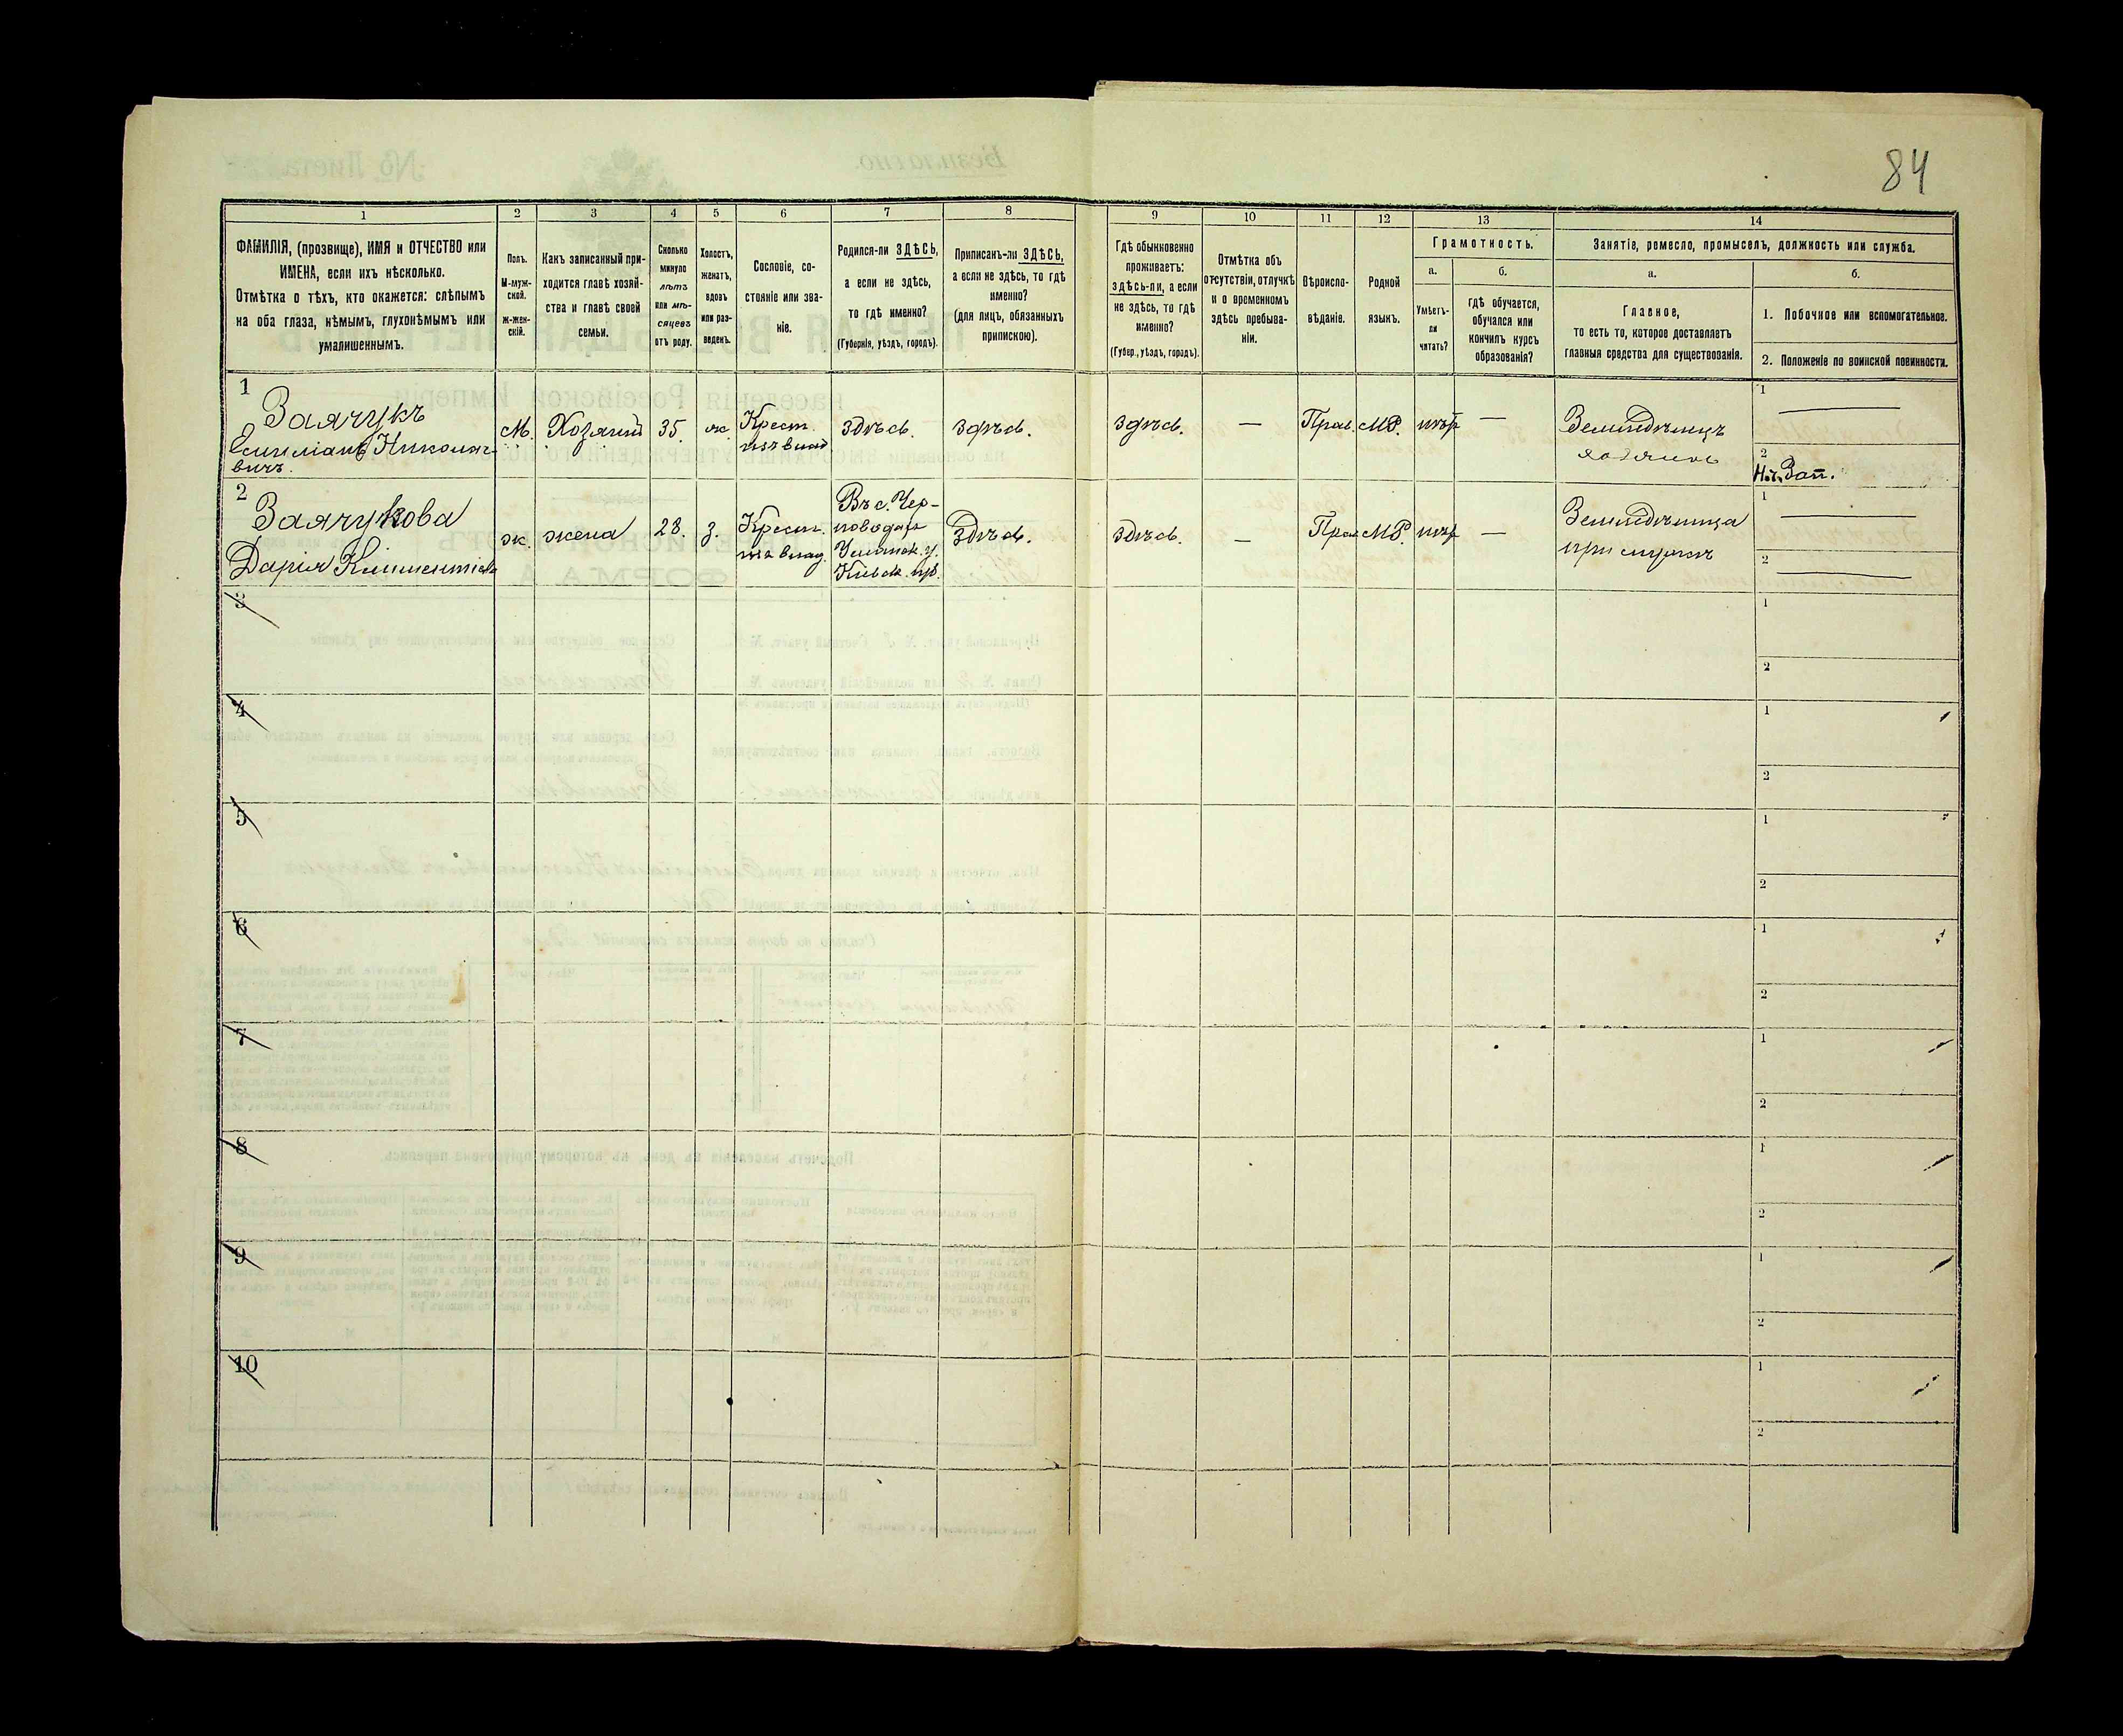 84
1
2
3
4
5
6
7
8
9
10
11
12
13
14
ФАМИЛІЯ, (прозвище), ИМЯ и ОТЧЕСТВО или
ИМЕНА, если ихъ нѣсколько.
Отмѣтка о тѣхъ, кто окажется: слѣпымъ
на оба глаза, нѣмымъ, глухонѣмымъ или
умалишеннымъ.
Полъ.
М-муж-
ской.
Ж-жен-
скій.
Какъ записанный при-
ходится главѣ хозяй-
ства и главѣ своей
семьи.
Сколько
минуло
лѣтъ
или мѣ-
сяцевъ
отъ роду.
Холостъ,
женатъ,
вдовъ
или раз-
веденъ.
Сословіе, со-
стояніе или зва-
ніе.
Родился-ли ЗДѢСЬ,
а если не здѣсь,
то гдѣ именно?
(Губернія, уѣздъ, городъ).
Приписанъ-ли ЗДѢСЬ,
а если не здѣсь, то гдѣ
именно?
(для лицъ, обязанныхъ
припискою).
Гдѣ обыкновенно
проживаетъ:
здѣсь-ли, а если
не здѣсь, то гдѣ
именно?
(Губер., уѣздъ, городъ).
Отмѣтка объ
отсутствіи, отлучкѣ
и о временномъ
здѣсь пребыва-
ніи.
Вѣроиспо-
вѣданіе.
Родной
языкъ.
Грамотность.
а.
Умѣетъ-
ли
читать?
б.
гдѣ обучается,
обучался или
кончилъ курсъ
образованія?
Занятіе, ремесло, промыселъ, должность или служба.
а.
Главное,
то есть то, которое доставляетъ
главныя средства для существованія.
б.
1. Побочное или вспомогательное.
2. Положеніе по воинской повинности.
1
Заячукъ
Емиліанъ Николае-
вичъ.
М.
Хозяинъ
35.
ж.
Крест.
изъ влад
Здѣсь.
Здѣсь.
Здѣсь.
—
Прав.
МР.
нѣтъ
—
Земледѣлецъ
хозяинъ
1
2
Н.ч. Зап.
2
Заячукова
Дарія Климентіева
ж.
жена
28.
з.
Крест.
изъ влад.
Въ с. Чер-
поводахъ
Уманск. у.
Кіевск. губ.
Здѣсь.
Здѣсь.
—
Прав
МР.
нѣтъ
—
Земледѣлица
при мужѣ
1
2
3
1
2
4
1
2
5
1
2
6
1
2
7
1
2
8
1
2
9
1
2
10
1
2